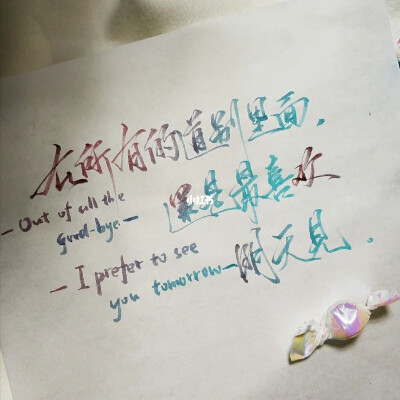 在所有的道别里面，
是最喜欢
明天见.
— Out of all the
good-bye.—
— I prefer to see
you tomorrow—
小红书